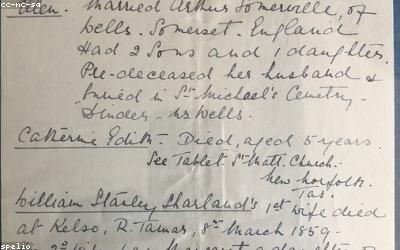 cc-nc-sa
Ellen. Married Arthur Somerville, of
Wells. Somerset. England
Had 2 Sons and 1 daughter.
Pre-deceased her husband &
buried in St Michael's Cemetry -
Dinder - nr Wells.
Catherine Edith - Died, aged 5 years.
See Tablet St Matt. Church -
New Norfolk.
Tas.
William Stanley Sharland's 1st wife died
at Kelso, R. Tamar, 8th March 1859.
spelio